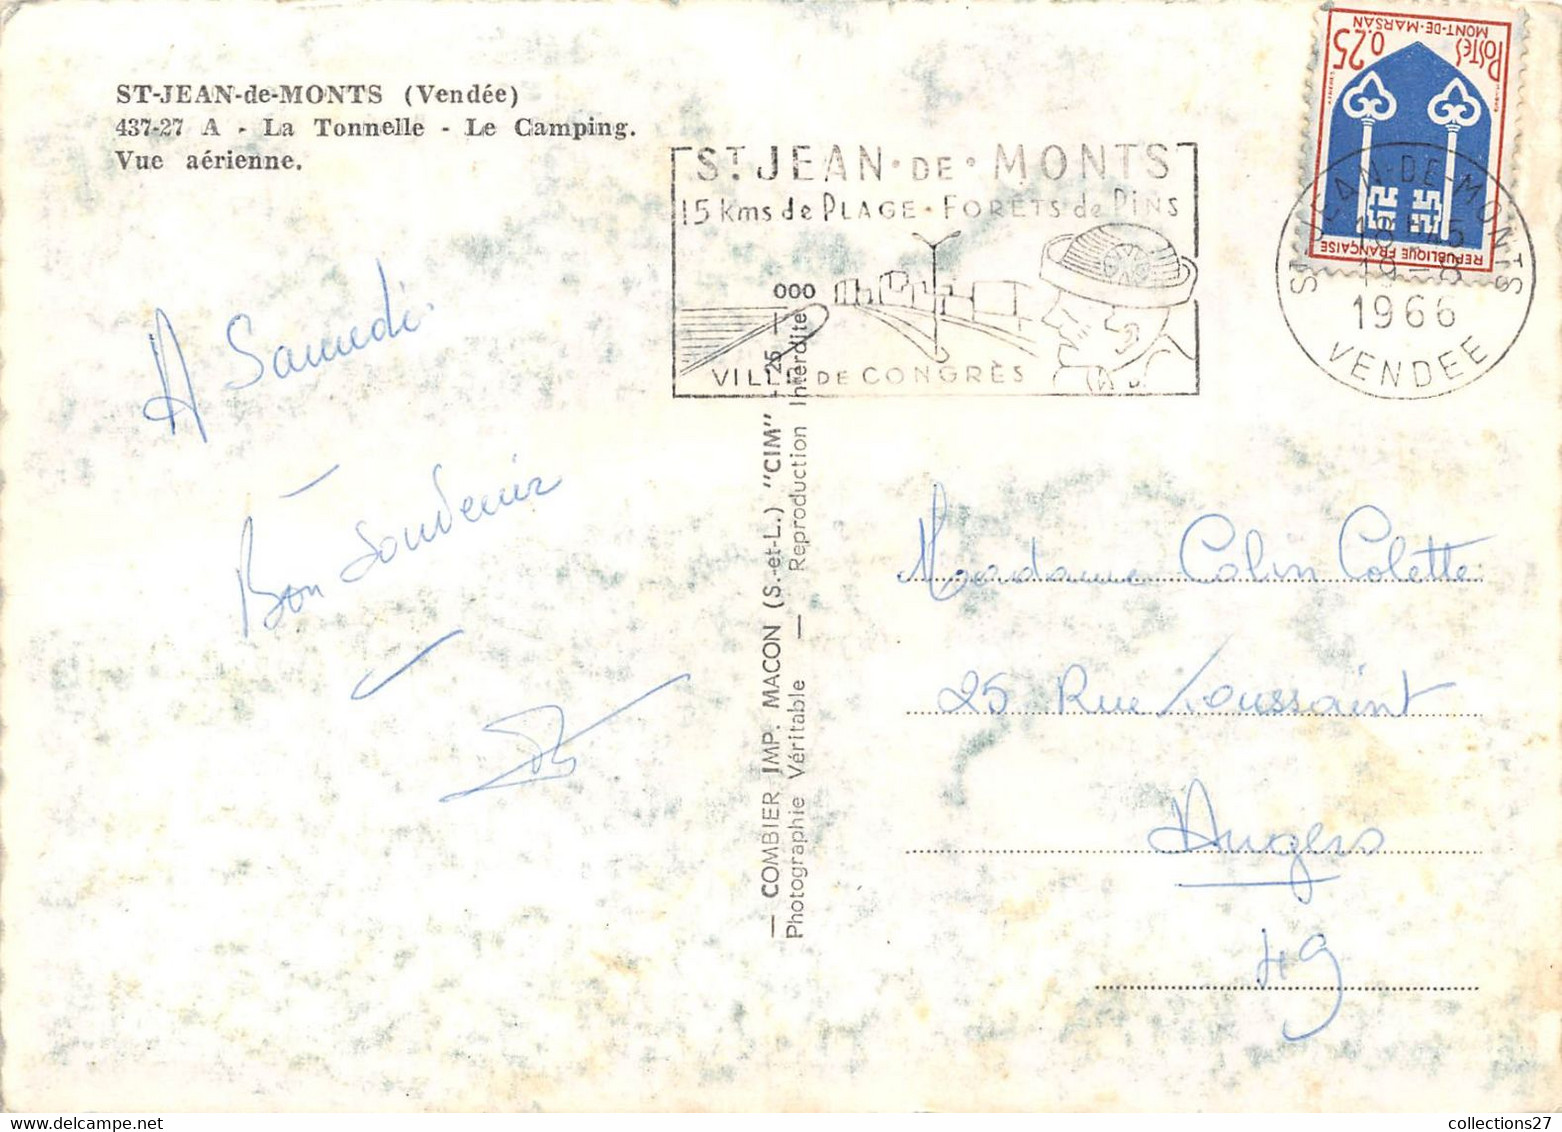 ST-JEAN-de-MONTS (Vendée)
437-27 A - La Tonnelle - Le Camping.
Vue aérienne.
A Samedi.
Bon Souvenir
ST JEAN·DE·MONTS
15 Kms de PLAGE·FORÊTS de PINS
VILLE DE CONGRÈS
POSTES 0,25
MONT-DE-MARSAN
REPUBLIQUE FRANÇAISE
ST-JEAN-DE-MONTS
1966
VENDEE
— COMBIER IMP. MACON (S.-et-L.) "CIM"
Photographie Véritable — Reproduction Interdite
25 — 000
Madame Colin Colette
25 Rue Toussaint
Angers
49
collections27